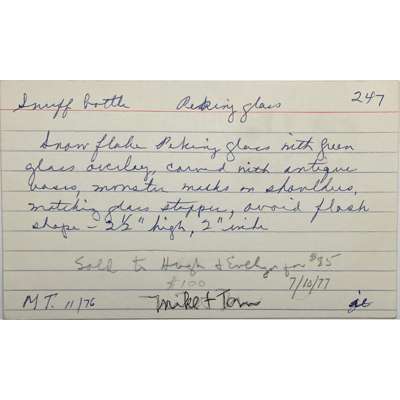 Snuff bottle Peking glass 247
Snowflake Peking glass with green
glass overlay, carved with antique
vases, monster masks on shoulders,
matching glass stopper, ovoid flask
shape - 2½" high, 2" wide
Sold to Hugh & Evelyn for $85
$100 7/10/77
M.T. 11/76 Mike & Tom